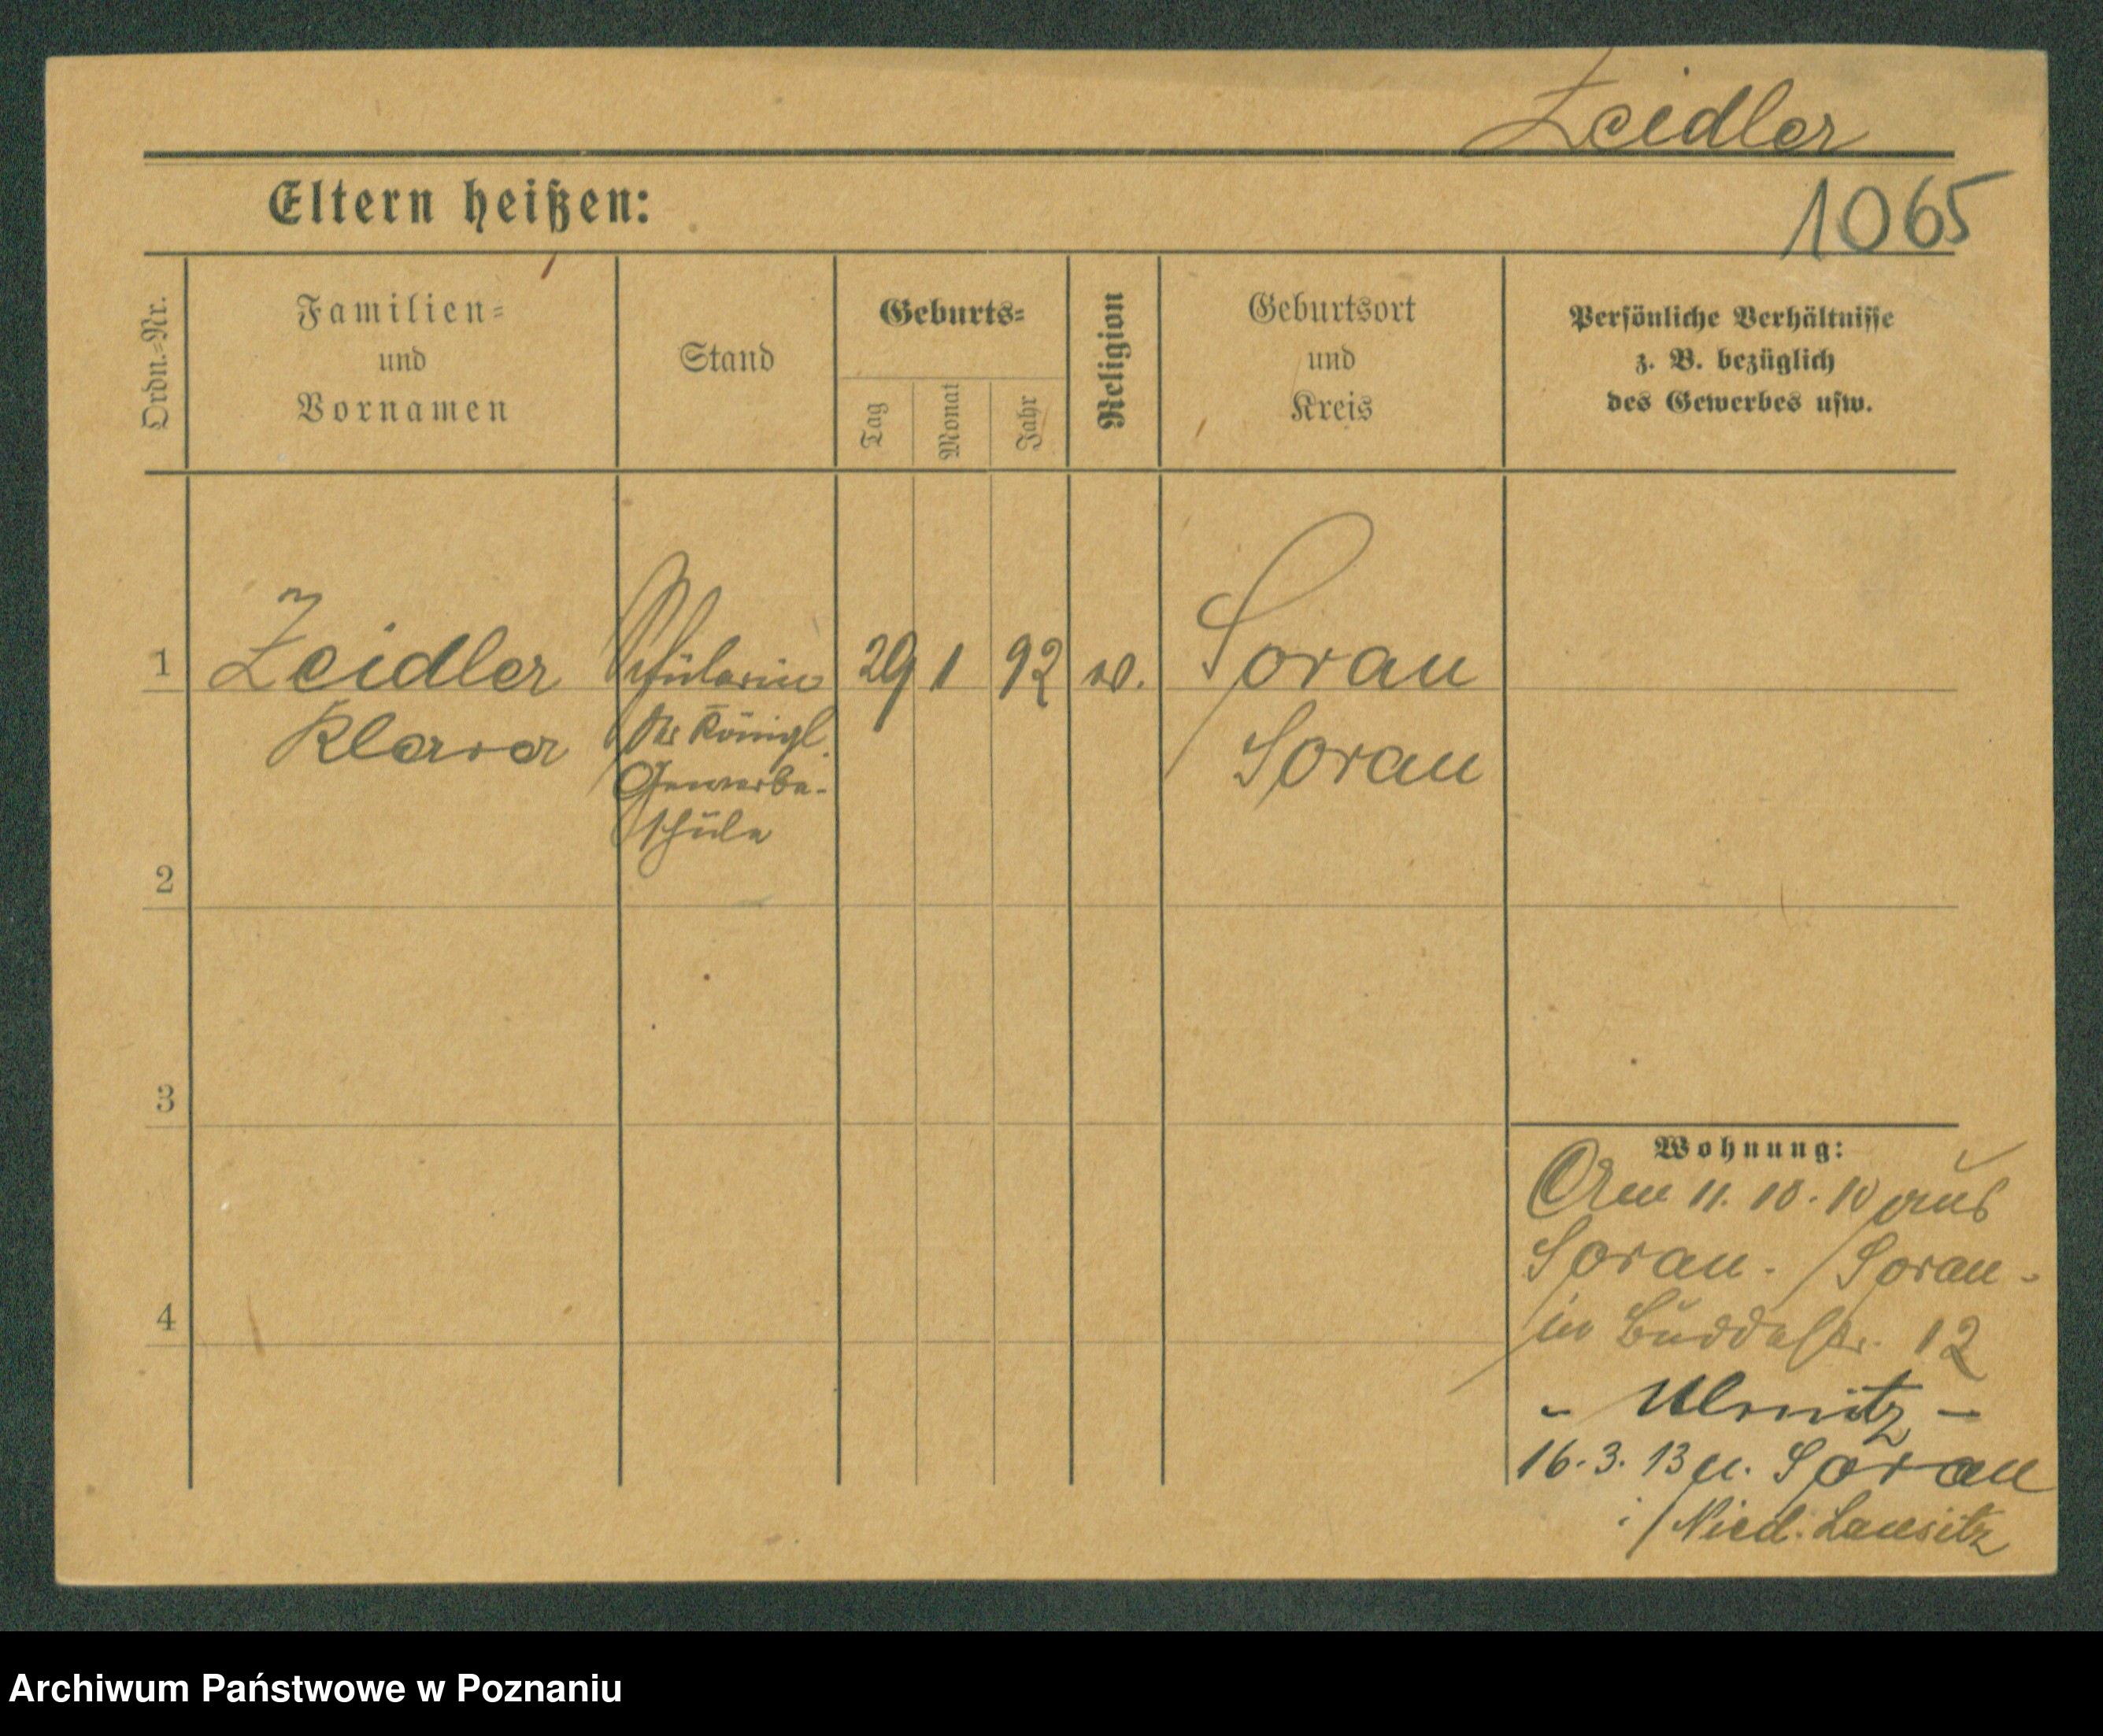 Zeidler
Eltern heißen:
1065
Ordn.=Nr.
Familien=
und
Vornamen
Stand
Geburts=
Tag
Monat
Jahr
Religion
Geburtsort
und
Kreis
Persönliche Verhältnisse
z. B. bezüglich
des Gewerbes usw.
1
Zeidler
Klara
Schülerin
der Königl.
Gewerbe-
schule
29 1 92
Sorau
Sorau
2
3
4
Wohnung:
Am 11. 10. 10 aus
Sorau. / Sorau -
in Buddestr. 12
16. 3. 13 n. Sorau
i/ Nied. Lausitz
Archiwum Państwowe w Poznaniu